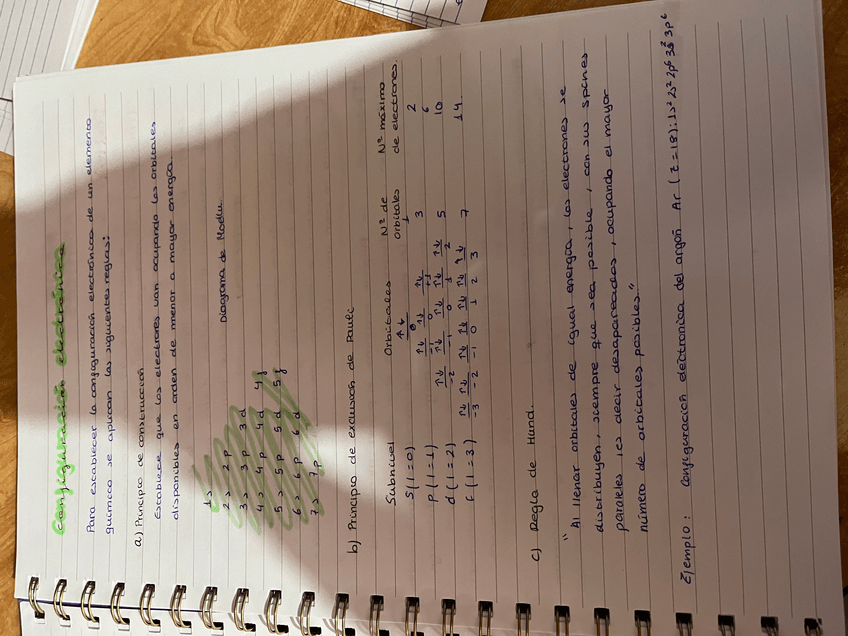 Configuración electrónica
Para establecer la configuración electrónica de un elemento
químico se aplican las siguientes reglas:
a) Principio de construcción
Establece que los electrones van ocupando los orbitales
disponibles en orden de menor a mayor energía.
1s
2s 2p
3s 3p 3d
4s 4p 4d 4f
5s 5p 5d 5f
6s 6p 6d
7s 7p
Diagrama de Moeller.
b) Principio de exclusión de Pauli
Subnivel Orbitales Nº de orbitales Nº máximo de electrones.
s (l=0) ↑↓ 0 1 2
p (l=1) ↑↓ ↑↓ ↑↓ -1 0 +1 3 6
d (l=2) ↑↓ ↑↓ ↑↓ ↑↓ ↑↓ -2 -1 0 1 2 5 10
f (l=3) ↑↓ ↑↓ ↑↓ ↑↓ ↑↓ ↑↓ ↑↓ -3 -2 -1 0 1 2 3 7 14
c) Regla de Hund.
"Al llenar orbitales de igual energía, los electrones se
distribuyen, siempre que sea posible, con sus spines
paralelos, es decir desapareados, ocupando el mayor
número de orbitales posibles."
Ejemplo: Configuración electronica del argón Ar (z=18): 1s² 2s² 2p⁶ 3s² 3p⁶